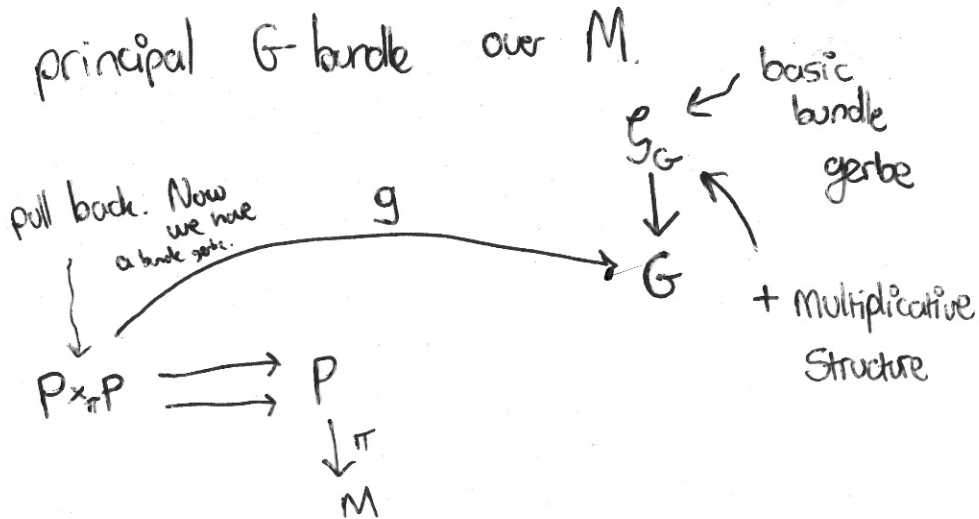 principal G-bundle over M.
basic
bundle
gerbe
𝒢_G
pull back. Now
we have
a bundle gerbe.
g
G
+ multiplicative
structure
P×_πP
P
π
M